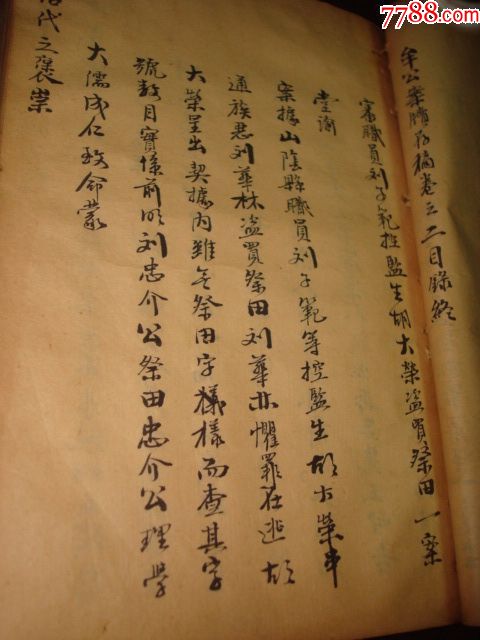 7788.com
牟公案牘存稿卷之二目錄終
審職員刘子範控監生胡大榮盜買祭田一案
堂諭
案據山陰縣職員刘子範等控監生胡大榮串
通族惡刘華林盜買祭田刘華林懼罪在逃胡
大榮呈出契據內雖無祭田字樣而查其字
號数目實係前明刘忠介公祭田忠介公理學
大儒成仁致命蒙
代之褒崇